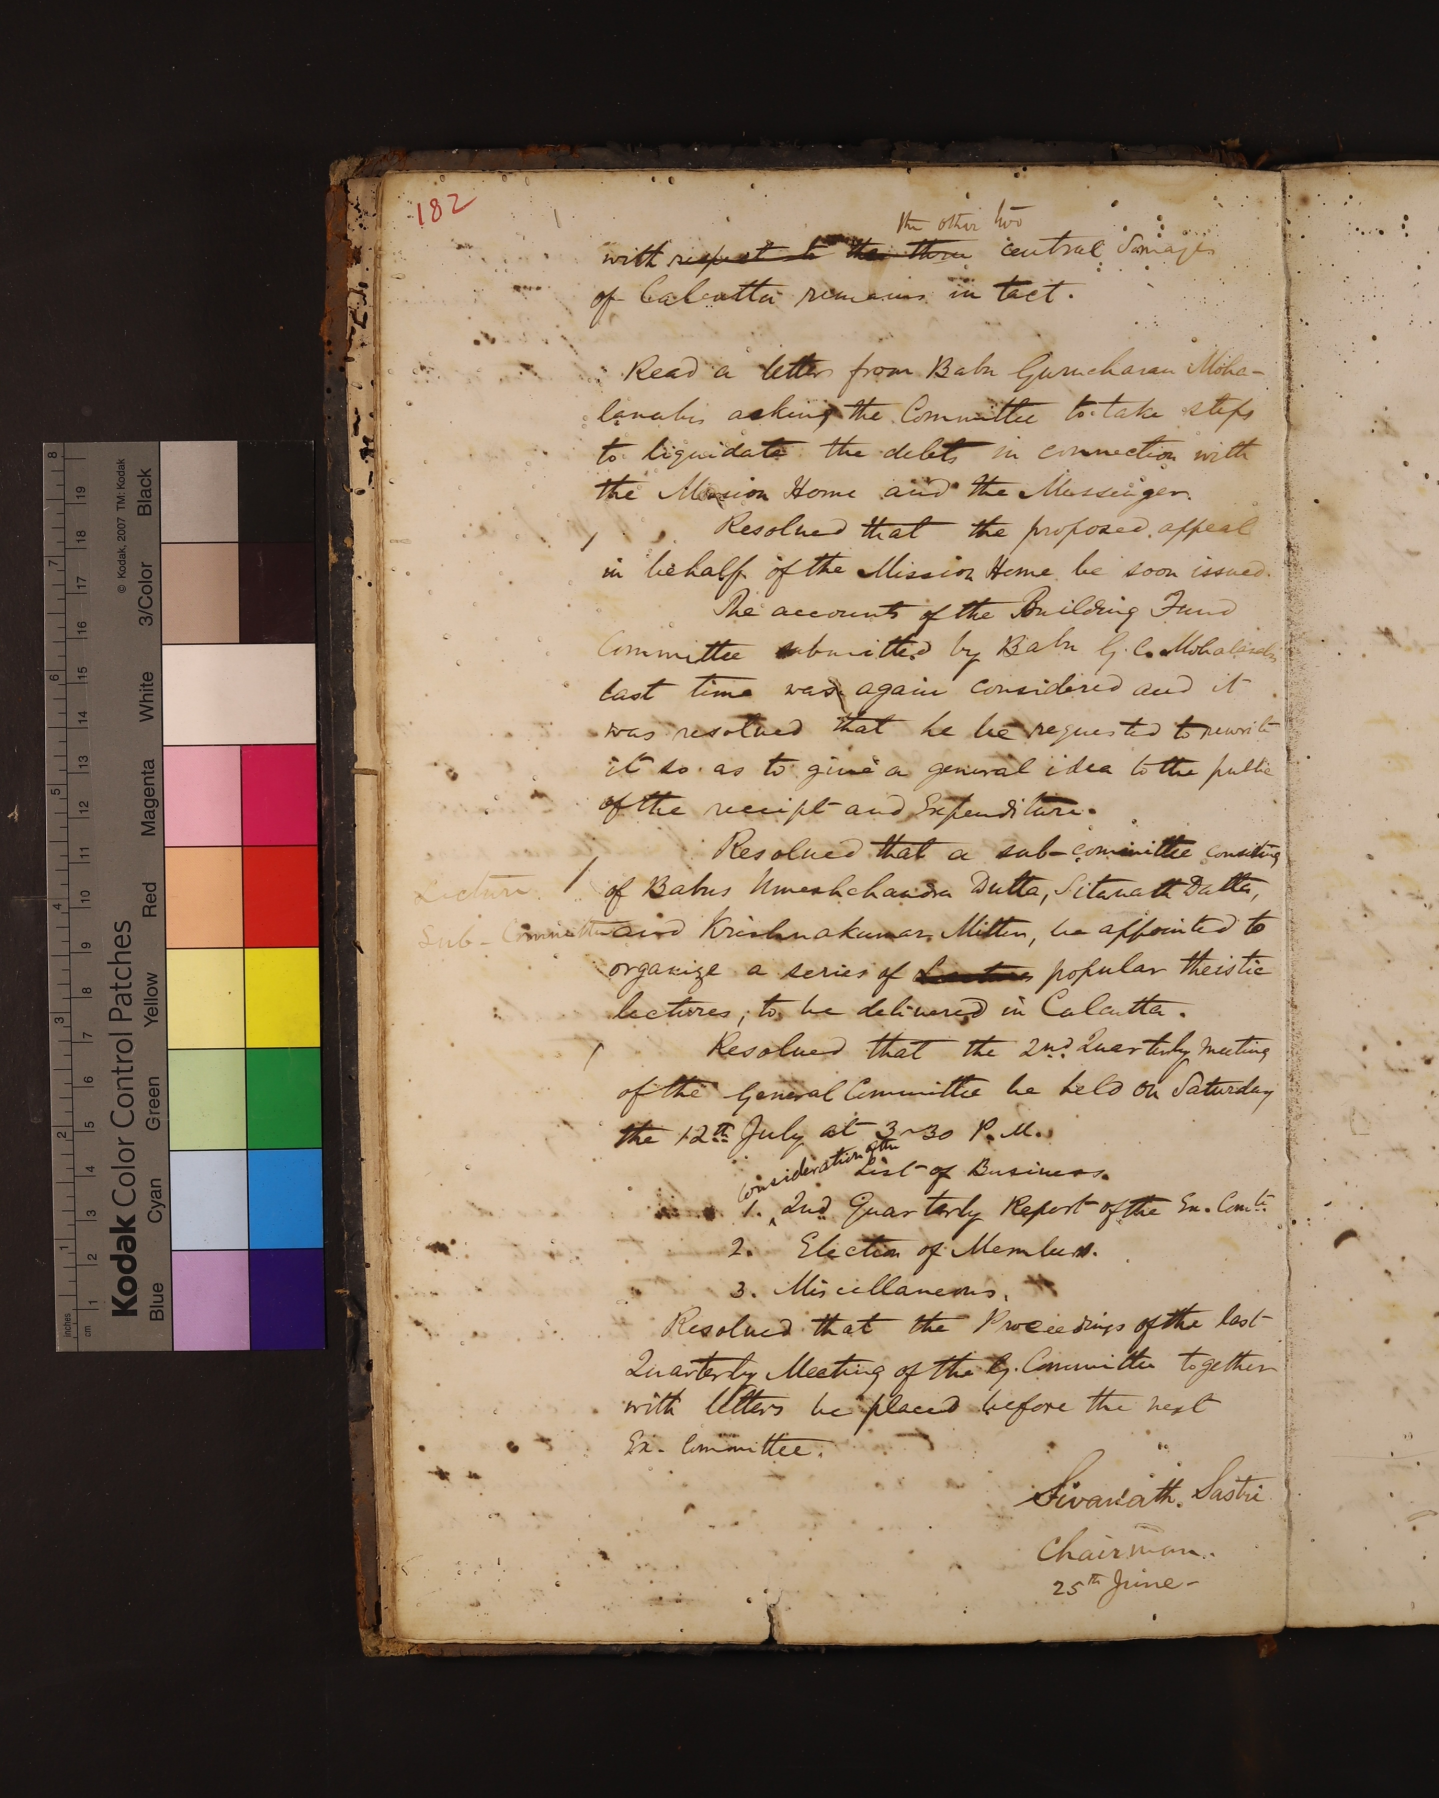 182
the other two
with respect to the three central Samajes
of Calcutta remains in tact.
Read a letter from Babu Gurucharan Moha-
lanabis asking the Committee to take steps
to liquidate the debts in connection with
the Mission Home and the Messenger.
Resolved that the proposed appeal
in behalf of the Mission Home be soon issued.
The accounts of the Building Fund
Committee submitted by Babu G. C. Mohalanabis
last time was again considered and it
was resolved that he be requested to rewrite
it so as to give a general idea to the public
of the receipt and Expenditure.
Resolved that a sub-committee consisting
Lecture
of Babus Umeshchandra Dutta, Sitanath Datta,
Sub-Committee
and Krishnakumar Mitter, be appointed to
organize a series of Lectures popular theistic
lectures, to be delivered in Calcutta.
Resolved that the 2nd Quarterly meeting
of the General Committee be held on Saturday
the 12th July at 3-30 P.M.
List of Business.
Consideration of the
1. 2nd Quarterly Report of the Ex. Comte.
2. Election of Members.
3. Miscellaneous.
Resolved that the Proceedings of the last
Quarterly Meeting of the G. Committee together
with letters be placed before the next
Ex. Committee.
Sivanath Sastri
Chairman.
25th June-
8 7 6 5 4 3 2 1 inches
19 18 17 16 15 14 13 12 11 10 9 8 7 6 5 4 3 2 1 cm
© Kodak, 2007 TM: Kodak
Kodak Color Control Patches
Blue Cyan Green Yellow Red Magenta White 3/Color Black